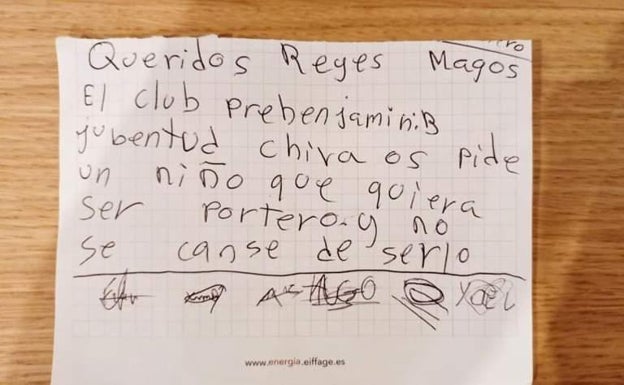 Queridos Reyes Magos
El club prebenjamin:B
juventud chiva os pide
un niño que quiera
ser portero.y no
se canse de serlo
Yael
www.energia.eiffage.es